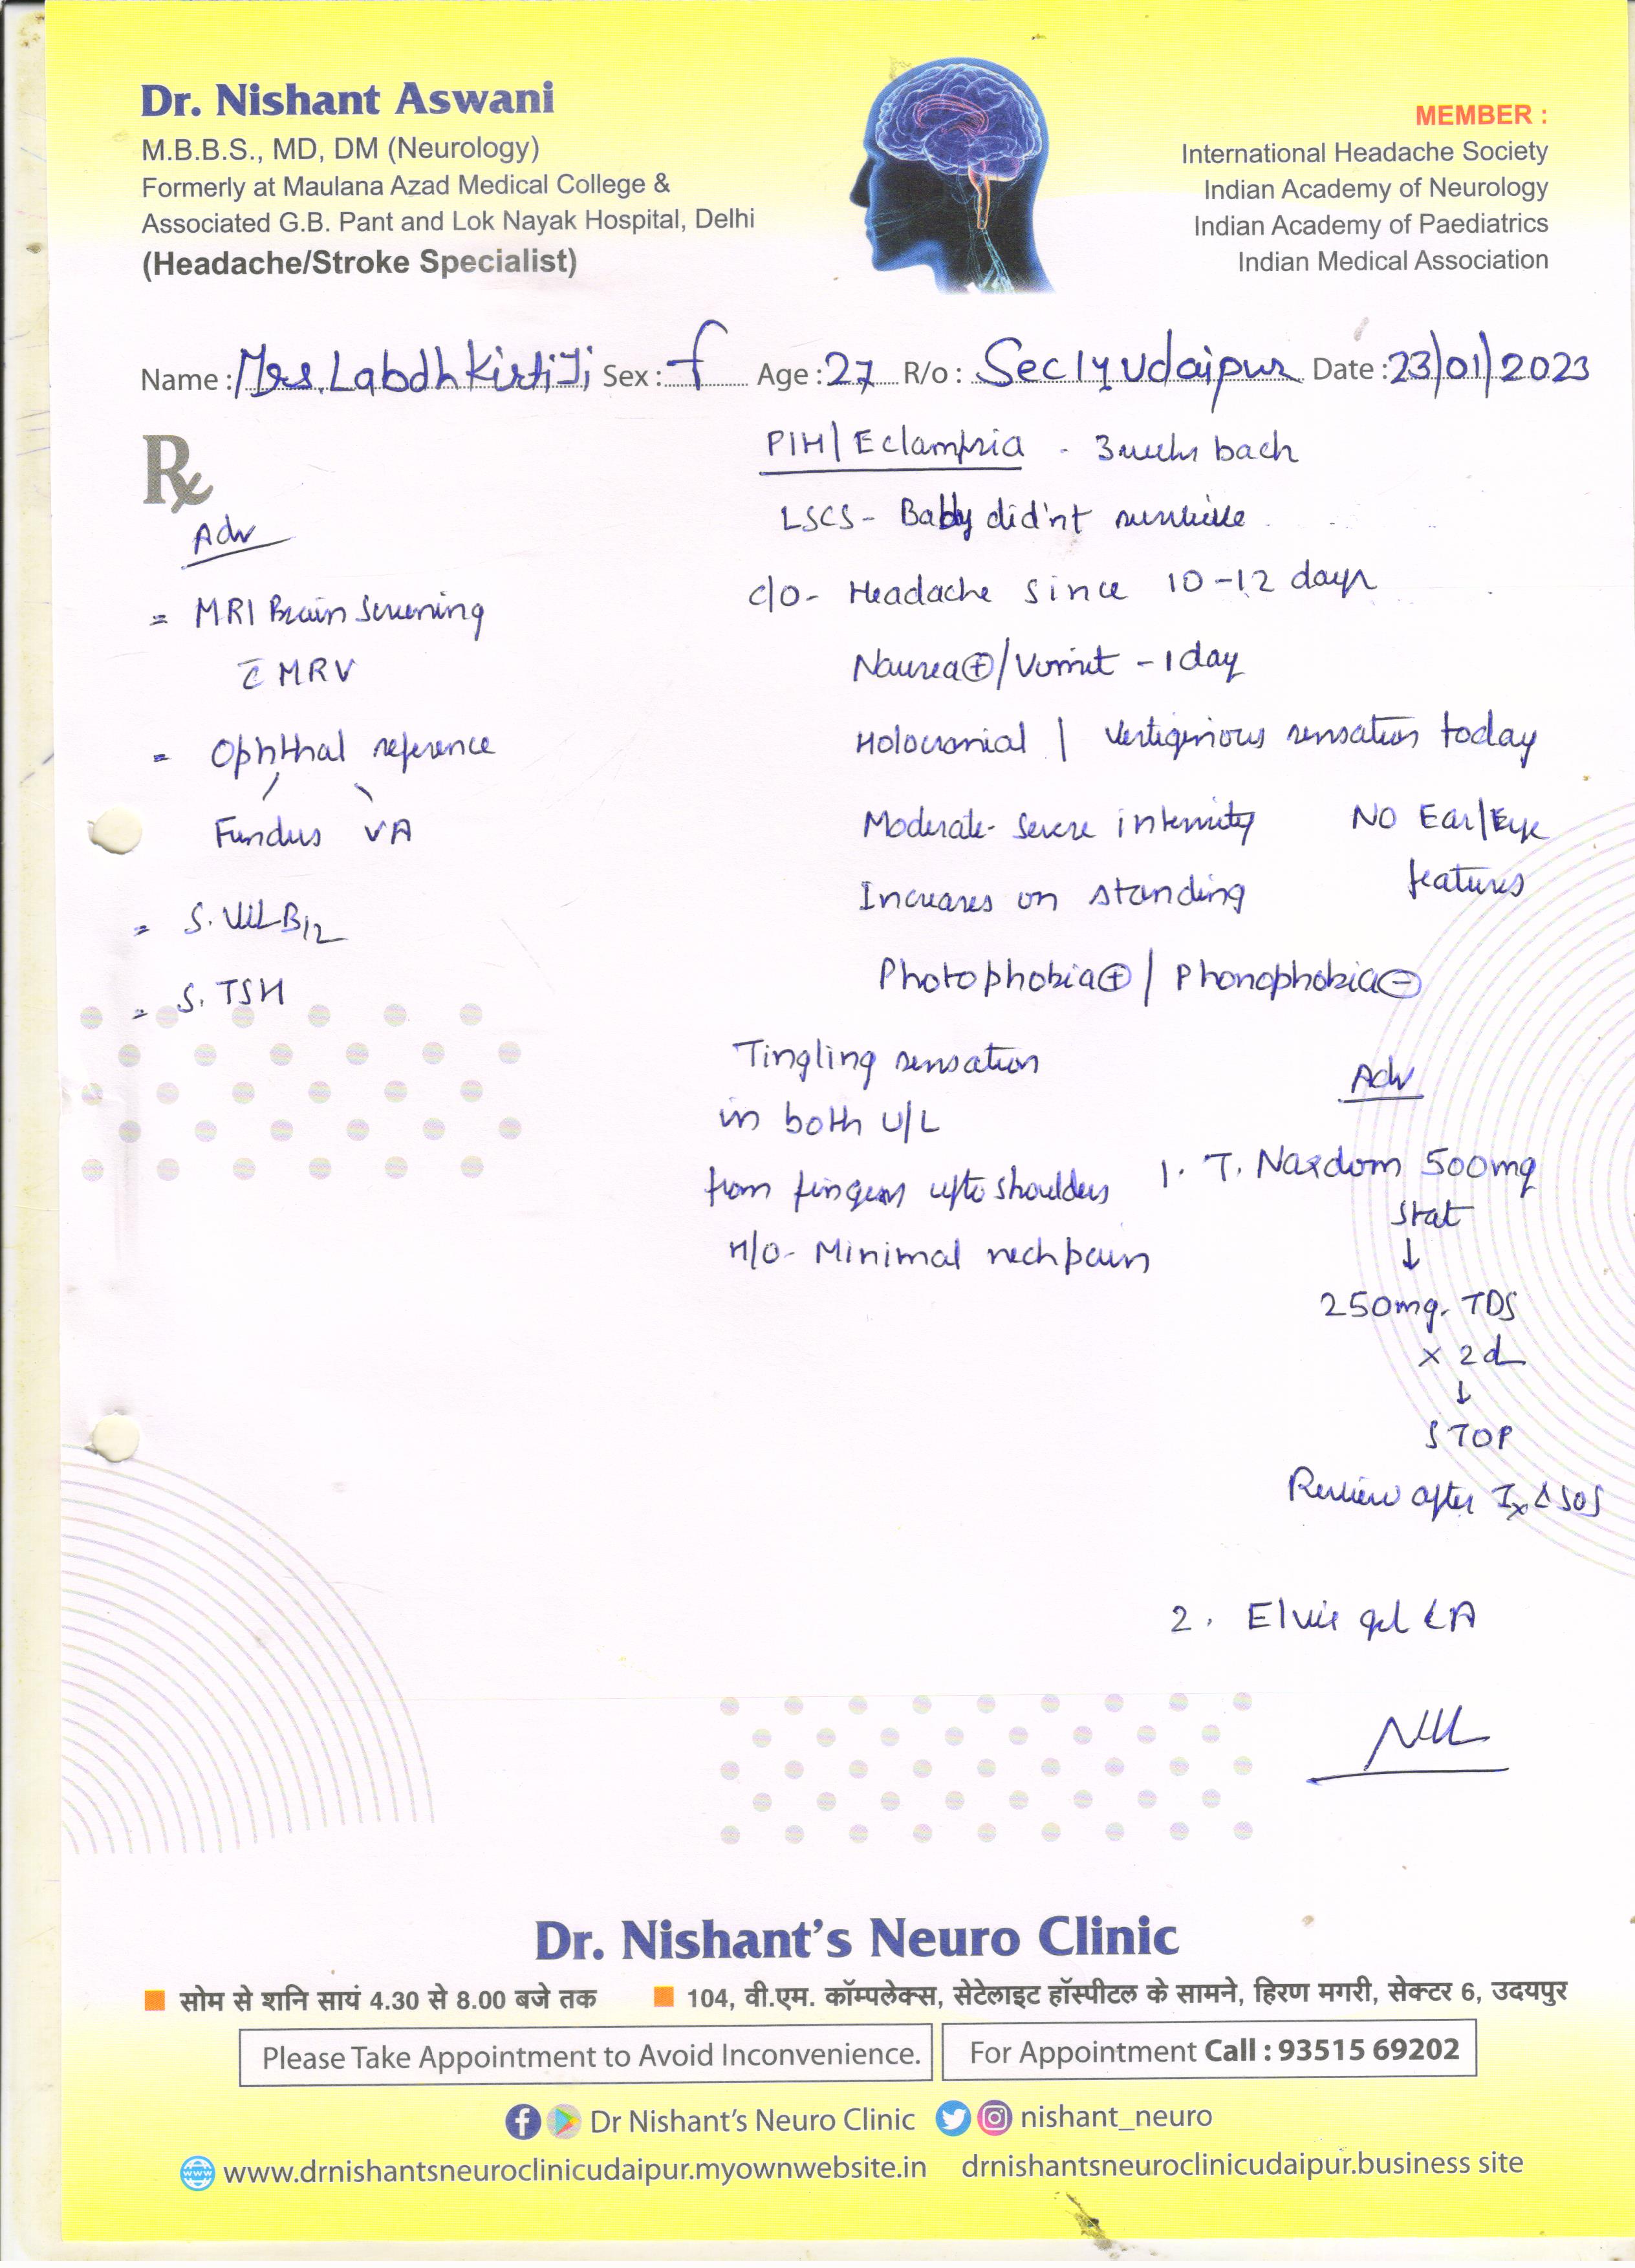 Dr. Nishant Aswani
M.B.B.S., MD, DM (Neurology)
Formerly at Maulana Azad Medical College &
Associated G.B. Pant and Lok Nayak Hospital, Delhi
(Headache/Stroke Specialist)
MEMBER :
International Headache Society
Indian Academy of Neurology
Indian Academy of Paediatrics
Indian Medical Association
Name : Mrs. Labdh Kirti Ji Sex : f Age : 27 R/o : Sec 14 Udaipur Date : 23/01/2023
Rx
Adv
= MRI Brain Screening
c̄ MRV
= Ophthal reference
Fundus VA
= S. Vit B12
= S. TSH
PIH/Eclampsia - 3 weeks back
LSCS - Baby did'nt survive
c/o - Headache since 10-12 days
Nausea⊕/Vomit - 1 day
Holocranial | Vertiginous sensation today
Moderate - severe intensity NO Ear/Eye
features
Increases on standing
Photophobia⊕ / Phonophobia⊖
Tingling sensation
in both U/L
from fingers upto shoulders
H/O - Minimal neck pain
Adv
1. T. Naxdom 500mg
Stat
↓
250mg. TDS
× 2d
↓
STOP
Review after Ix & SOS
2. gel LA
Dr. Nishant's Neuro Clinic
सोम से शनि सायं 4.30 से 8.00 बजे तक 104, वी.एम. कॉम्पलेक्स, सेटेलाइट हॉस्पीटल के सामने, हिरण मगरी, सेक्टर 6, उदयपुर
Please Take Appointment to Avoid Inconvenience. For Appointment Call : 93515 69202
Dr Nishant's Neuro Clinic nishant_neuro
www.drnishantsneuroclinicudaipur.myownwebsite.in drnishantsneuroclinicudaipur.business site